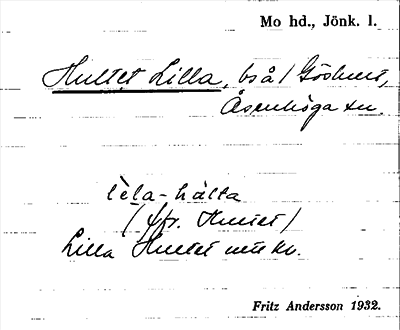 Mo hd., Jönk. l.
Hultet Lilla, bså / Göshult,
Åsenhöga sn.
lèla-hälta
(jfr. Hultet)
Lilla Hultet utt. kv.
Fritz Andersson 1932.